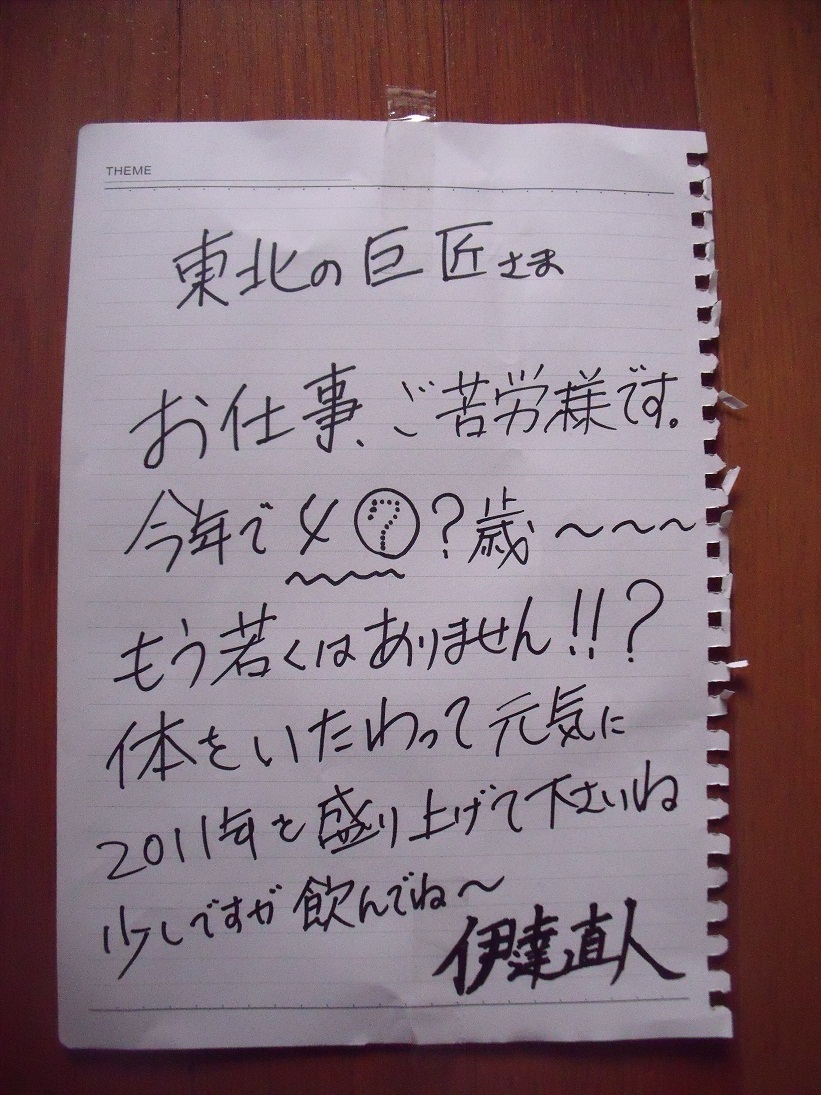 THEME
東北の巨匠さま
お仕事、ご苦労様です。
今年で4⑦?歳〜〜〜
もう若くはありません!!?
体をいたわって元気に
2011年を盛り上げて下さいね
少しですが飲んでね〜
伊達直人